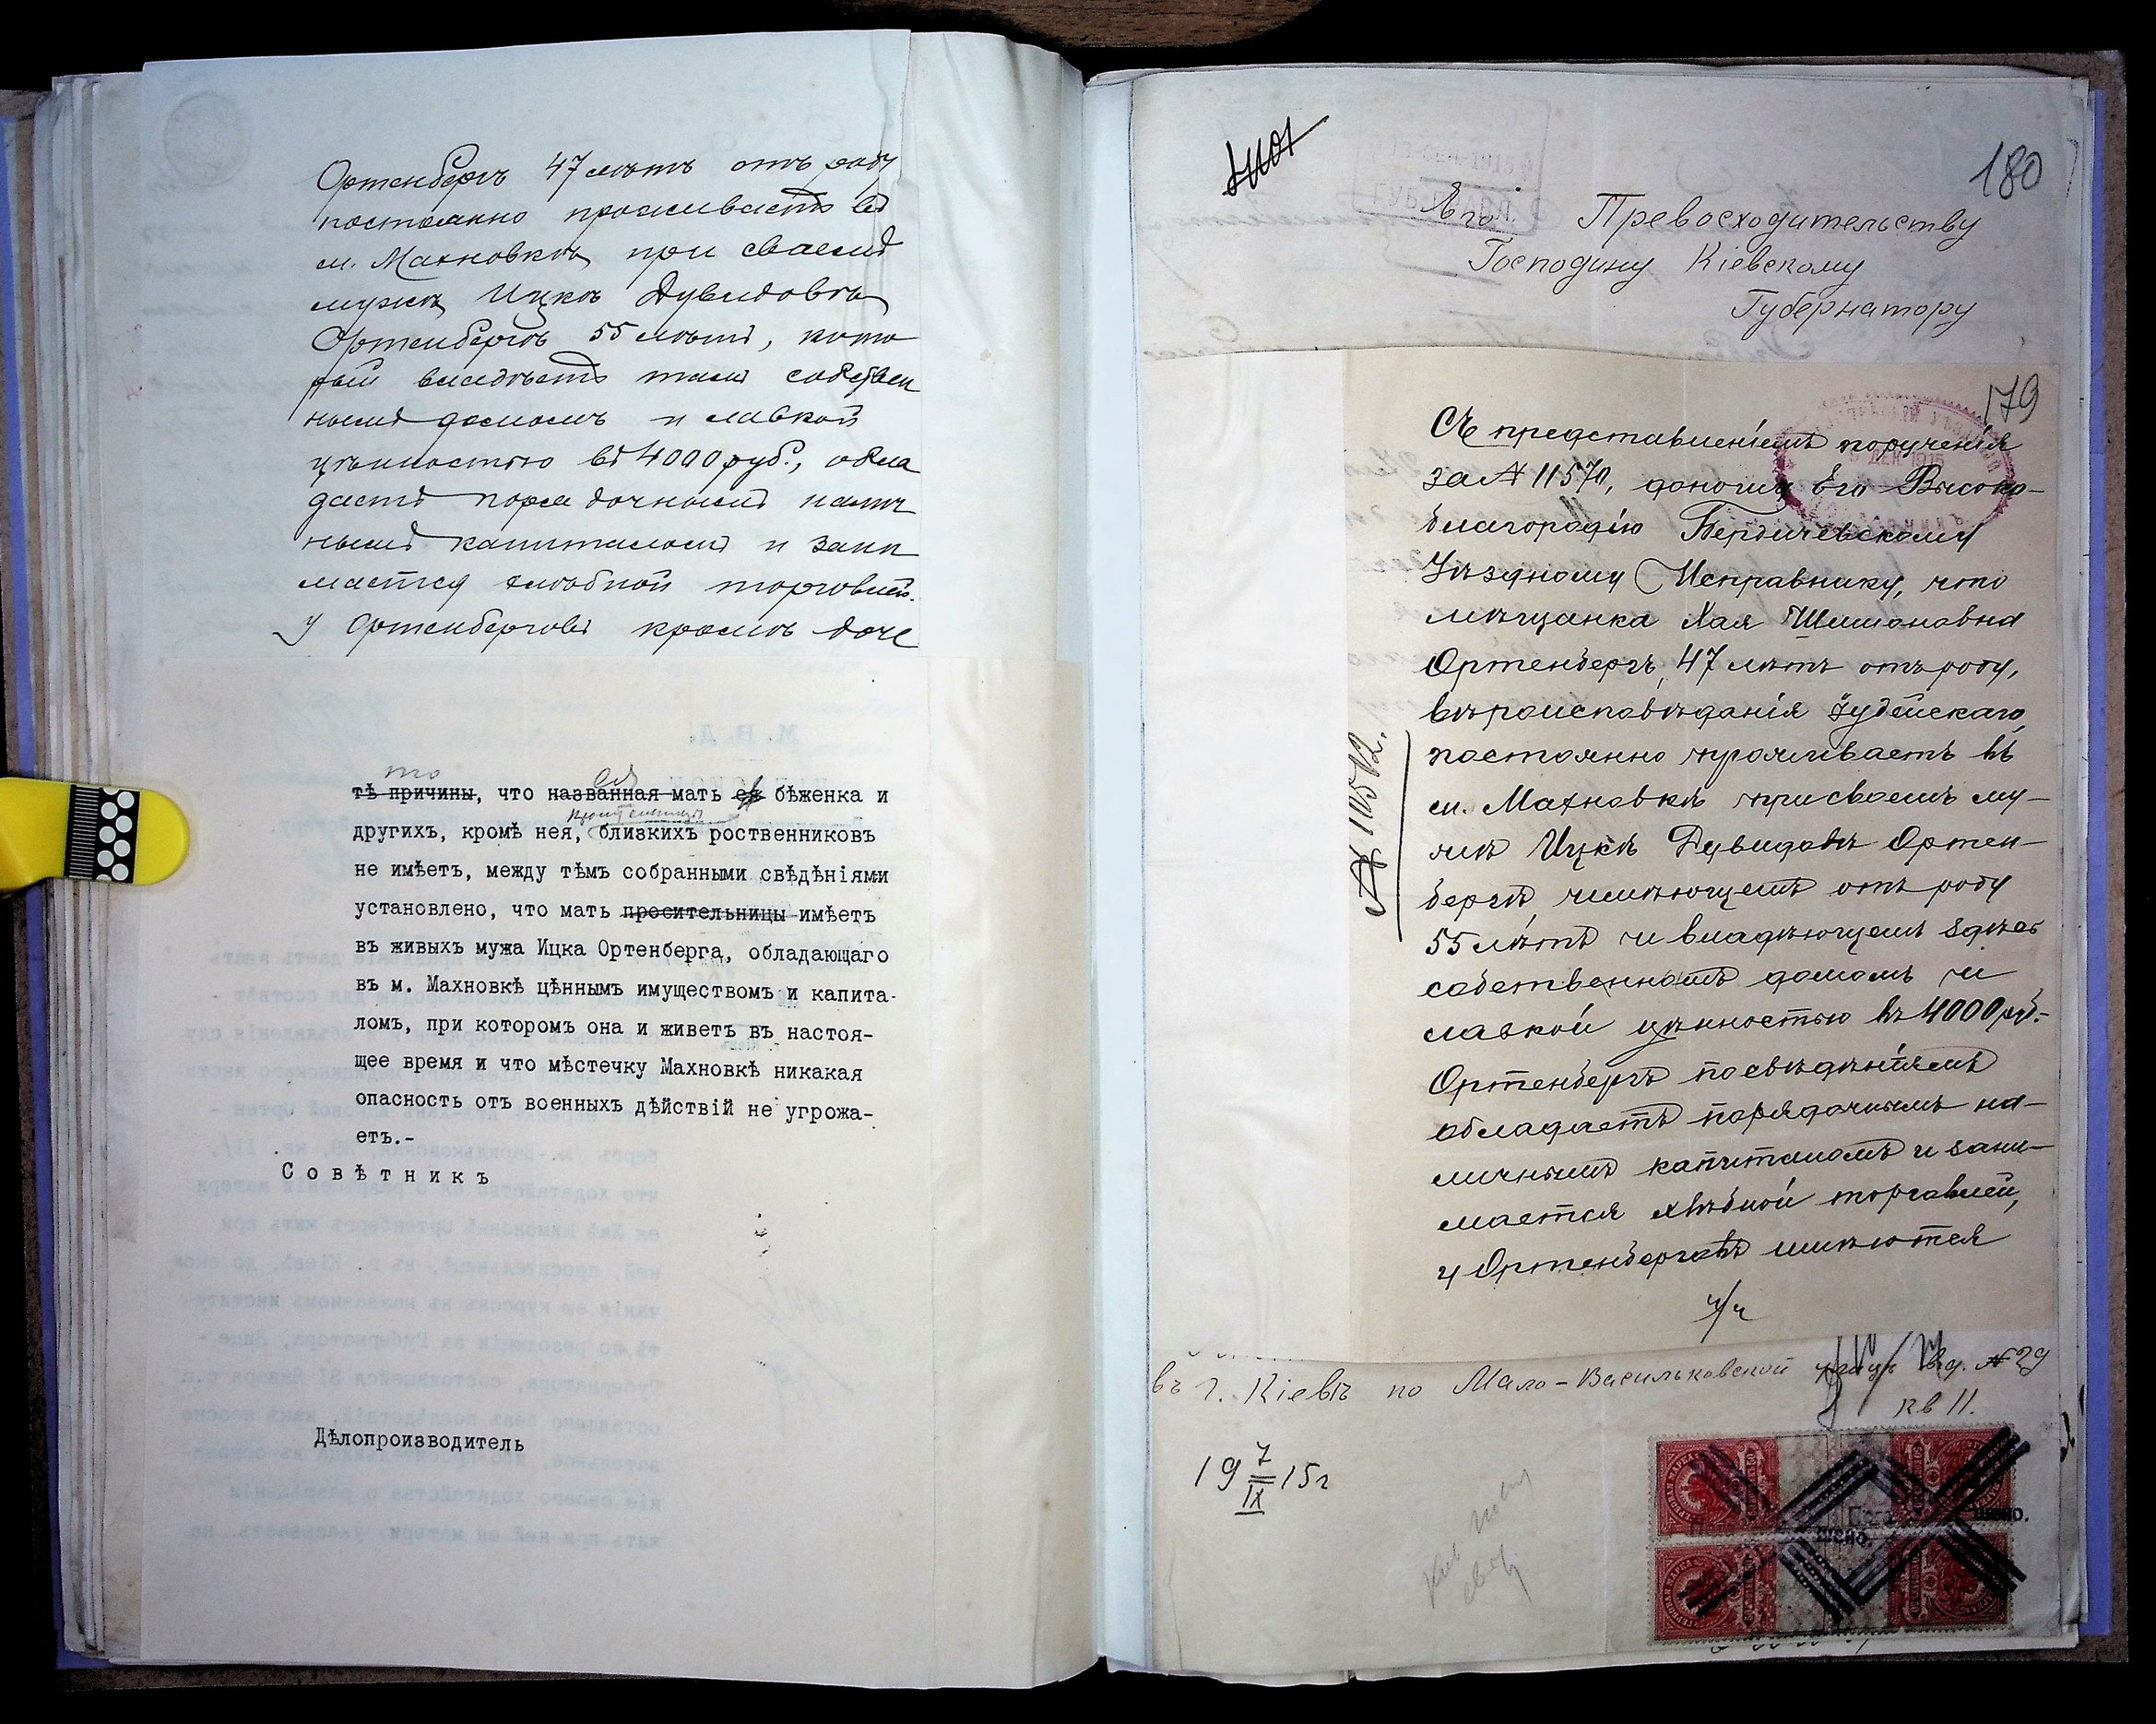 Ортенбергъ 47 лѣтъ отъ роду
постоянно проживаетъ въ
м. Махновкѣ при своемъ
мужѣ Ицкѣ Дувидовѣ
Ортенбергѣ 55 лѣтъ, кото
рый владѣетъ тамъ собствен
нымъ домомъ и лавкой
цѣнностью въ 4000 руб., обла
даетъ поря дочнымъ налич
нымъ капиталомъ и зани
мается хлѣбной торговлей.
У Ортенберговъ кромѣ доче
то
тѣ причины, что названная мать ея бѣженка и
другихъ, кромѣ нея, близкихъ роственниковъ
не имѣетъ, между тѣмъ собранными свѣдѣніями
установлено, что мать просительницы имѣетъ
въ живыхъ мужа Ицка Ортенберга, обладающаго
въ м. Махновкѣ цѣннымъ имуществомъ и капита-
ломъ, при которомъ она и живетъ въ настоя-
щее время и что мѣстечку Махновкѣ никакая
опасность отъ военныхъ дѣйствій не угрожа-
етъ.-
Совѣтникъ
Дѣлопроизводитель
180
Его Превосходительству
Господину Кіевскому
Губернатору
179
Съ представленіемъ порученія
за № 11570, доношу Его Высоко-
благородію Бердичевскому
Уѣздному Исправнику, что
мѣщанка Хая Шимоновна
Ортенбергъ, 47 лѣтъ отъ роду,
вѣроисповѣданія Іудейскаго,
постоянно проживаетъ въ
м. Махновкѣ при своемъ му-
жѣ Ицкѣ Дувидовѣ Ортен-
бергѣ имѣющемъ отъ роду
55 лѣтъ и владѣющемъ здѣсь
собственномъ домомъ и
лавкой цѣнностью въ 4000 руб.-
Ортенбергъ по свѣдѣніямъ
обладаетъ порядочнымъ на-
личнымъ капиталомъ и зани-
мается хлѣбной торговлей,
у Ортенберговъ имѣются
въ г. Кіевѣ по Мало-Васильковской № 29
кв 11.
19 7/IX 15 г